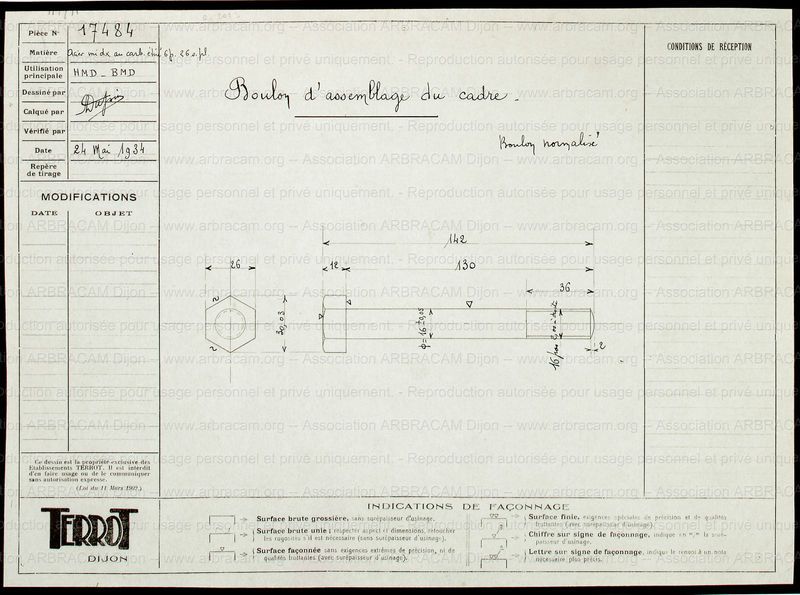 Pièce N° 17484
Matière Acier mi dx au carb. étiré 6p. 26 s. pl.
Utilisation principale HMD_BMD
Dessiné par
Calqué par
Vérifié par
Date 24 Mai 1934
Repère de tirage
MODIFICATIONS
DATE OBJET
CONDITIONS DE RÉCEPTION
Boulon d'assemblage du cadre.
Boulon normalisé
142
26
12
130
36
30,03
ϕ=16 ±0,05
16 pas 2,00 à droite
2
Ce dessin est la propriété exclusive des
Etablissements TERROT. Il est interdit
d'en faire usage ou de le communiquer
sans autorisation expresse.
(Loi du 11 Mars 1902.)
TERROT
DIJON
INDICATIONS DE FAÇONNAGE
Surface brute grossière, sans surépaisseur d'usinage.
Surface brute unie; respecter aspect et dimensions, retoucher
les rugosités s'il est nécessaire (sans surépaisseur d'usinage).
Surface façonnée sans exigences extrêmes de précision, ni de
qualités frottantes (avec surépaisseur d'usinage).
Surface finie, exigences spéciales de précision et de qualités
frottantes (avec surépaisseur d'usinage).
Chiffre sur signe de façonnage, indique en m/m la surépaisseur d'usinage.
Lettre sur signe de façonnage, indique le renvoi à un nota
nécessaire plus précis.
www.arbracam.org -- Association ARBRACAM Dijon -- www.arbracam.org -- Association ARBRACAM Dijon
Reproduction autorisée pour usage personnel et privé uniquement. - Reproduction autorisée pour usage personnel et privé uniquement.